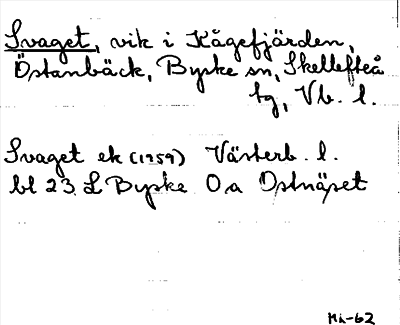 Svaget, vik i Kågefjärden,
Östanbäck, Byske sn, Skellefteå
tg, Vb. l.
Svaget ek (1959) Västerb. l.
bl 23 L Byske O a Ostnäset
Mh-62